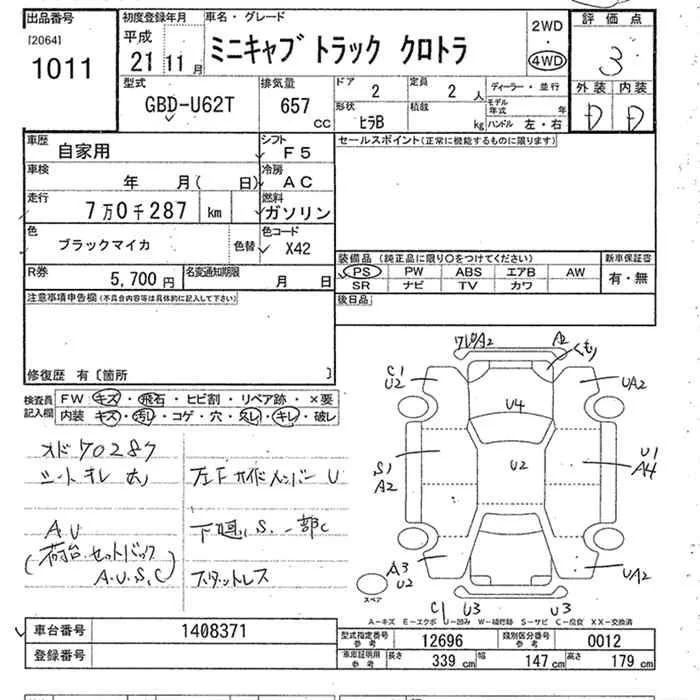 出品番号 初度登録年月 車名・グレード 2WD 評価点
[2064] 平成 ミニキャブ トラック クロトラ
1011 21 11月 4WD 3
型式 排気量 ドア 2 定員 2人 ディーラー・並行 外装 内装
GBD-U62T 657 CC 形状 ヒラB 積載 kg モデル年式 年 D D
ハンドル 左・右
車歴 自家用 シフト F5 セールスポイント(正常に機能するものに限ります)
車検 年 月( 日) 冷房 AC
走行 7万0千287 km 燃料 ガソリン
色 ブラックマイカ 色替 色コード X42
R券 5,700円 名変通知期限 月 日
装備品 (純正品に限り○をつけてください) 新車保証書
PS PW ABS エアB AW 有・無
SR ナビ TV カワ
後日品
注意事項申告欄(不具合内容等は具体的に記入して下さい)
修復歴 有〔箇所 〕
検査員記入欄 FW キズ・飛石・ヒビ割・リペア跡・×要
内装 キズ・汚レ・コゲ・穴・スレ・キレ・破レ
オド70287
シート キレ
A.U
(荷台.セットバック
A.U.S.C)
左Fサイドメンバー U
下廻り S.一部C
スタットレス
A2
くもり
C1
U2
UA2
U4
S1
A2
U2
U1
A4
A3
U2
UA2
スペア
C1 U3 U3
A-キズ E-エクボ U-凹み W-補修跡 S-サビ C-腐食 XX-交換済
車台番号 1408371
登録番号
型式指定番号 参考 12696 類別区分番号 参考 0012
車庫証明用 参考 長さ 339cm 幅 147cm 高さ 179cm